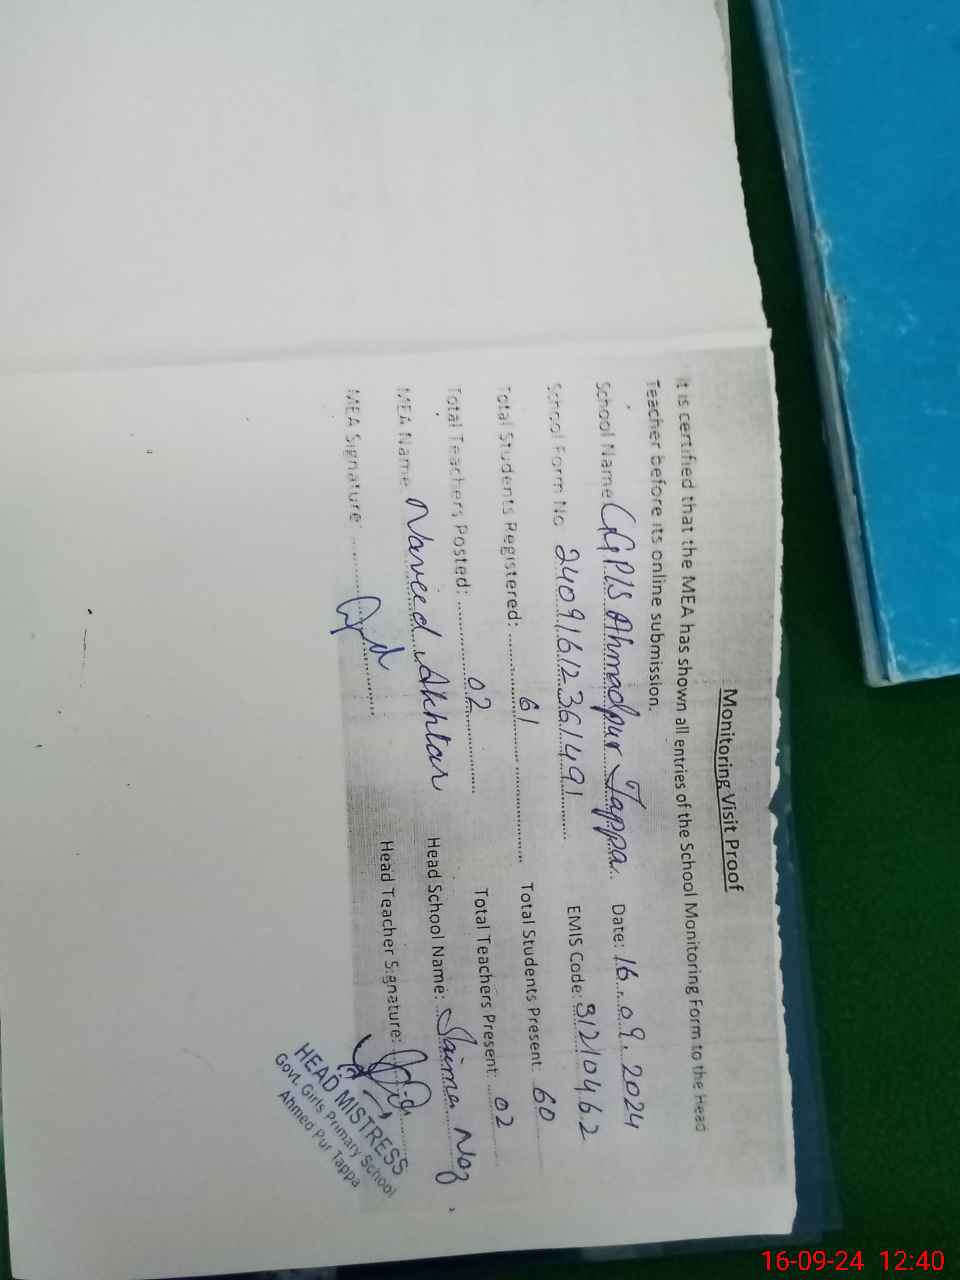 Monitoring Visit Proof
It is certified that the MEA has shown all entries of the School Monitoring Form to the Head
Teacher before its online submission.
School Name GGPS Ahmadpur Tappa Date: 16.09.2024
School Form No 24091612361491 EMIS Code: 31210462
Total Students Registered: 61 Total Students Present: 60
Total Teachers Posted: 02 Total Teachers Present: 02
MEA Name Naveed Akhtar Head School Name: Saima Naz
MEA Signature: Head Teacher Signature:
HEAD MISTRESS
Govt. Girls Primary School
Ahmed Pur Tappa
16-09-24 12:40